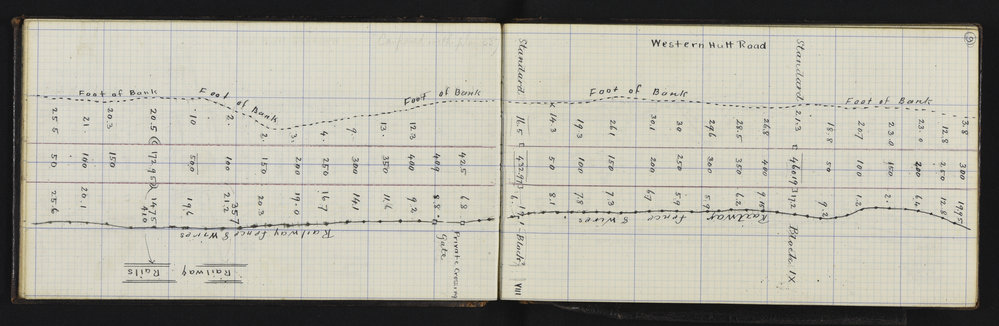 Western Hutt Road
9
Foot of Bank
Foot of Bank
Foot of Bank
Foot of Bank
Foot of Bank
25.5
21.
20.3
20.5
10
2.
2.
3.
4.
9.
13.
12.3
Standard.
16.5
14.3
19.3
26.1
30.1
30
29.6
28.5
26.8
Standard.
21.3
18.8
20.7
23.0
23.
12.8
13.8
50
100
150
500
100
150
200
250
300
350
400
409
425
50
100
150
200
250
300
350
400
50
100
150
200
250
300
25.6
20.1
19.6
35.7
20.3
19.0
16.7
14.1
11.6
9.2
8.8
6.8
8.1
7.8
7.3
6.7
5.9
5.9
6.2
17.2
9.2
1.2
2.
6.4
12.8
Railway fence 8 Wires
Railway fence 8 wires
Private Crossing
Gate
Block VIII
Block IX
Rails
Railway